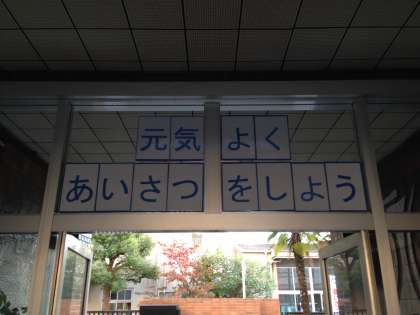 元気よく
あいさつをしよう